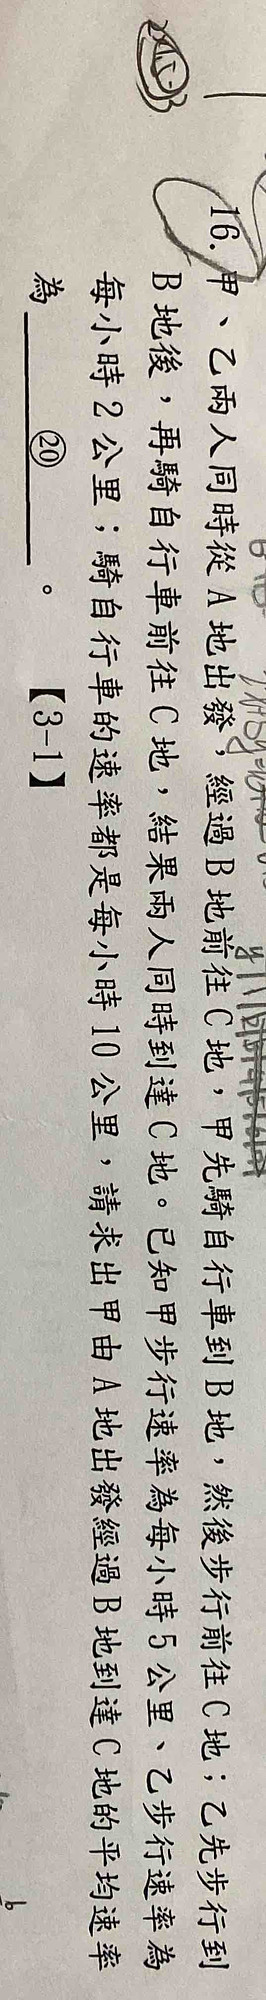 16. 甲、乙兩人同時從 A 地出發，經過 B 地前往 C 地，甲先騎自行車到 B 地，然後步行前往 C 地；乙先步行到
B 地後，再騎自行車前往 C 地，結果兩人同時到達 C 地。已知甲步行速率為每小時 5 公里、乙步行速率為
每小時 2 公里；騎自行車的速率都是每小時 10 公里，請求出甲由 A 地出發經過 B 地到達 C 地的平均速率
為 ⑳ 。【3-1】